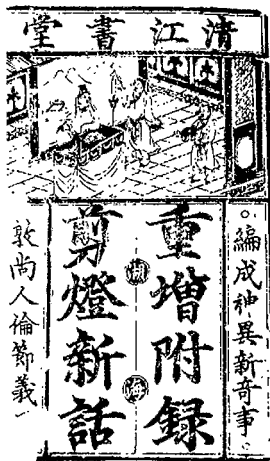 清江書堂
編成神異新奇事
重增附録
湖海
剪燈新話
敦尚人倫節義